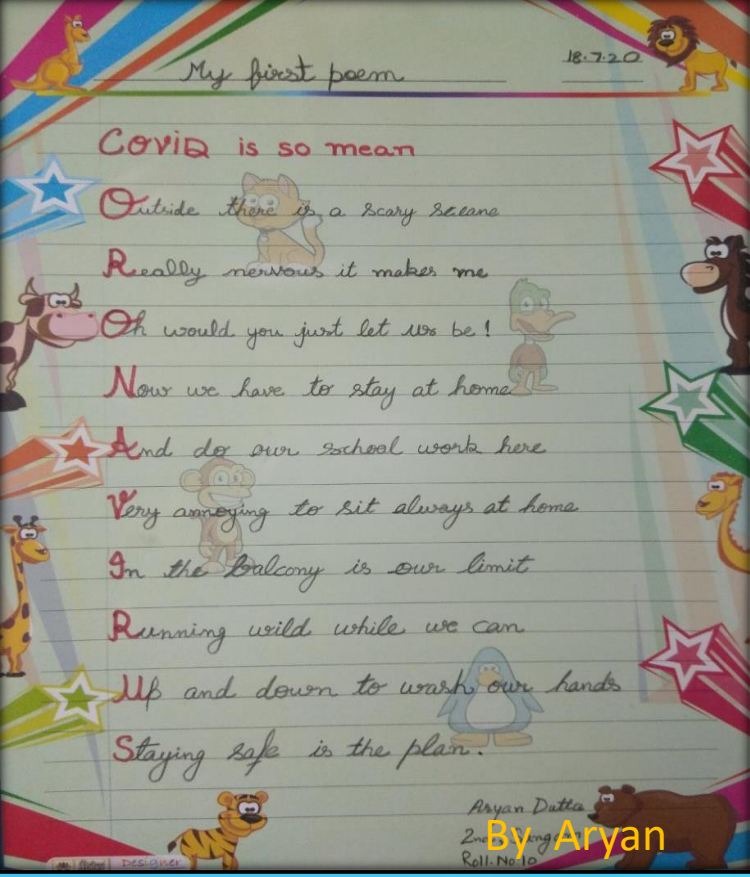 My first poem
18.7.20
Covid is so mean
Outside there is a scary sceane
Really nervous it makes me
Oh would you just let us be!
Now we have to stay at home
And do our school work here
Very annoying to sit always at home
In the balcony is our limit
Running wild while we can
Up and down to wash our hands
Staying safe is the plan.
Aryan Dutta
By Aryan
Roll. No-10
Designer